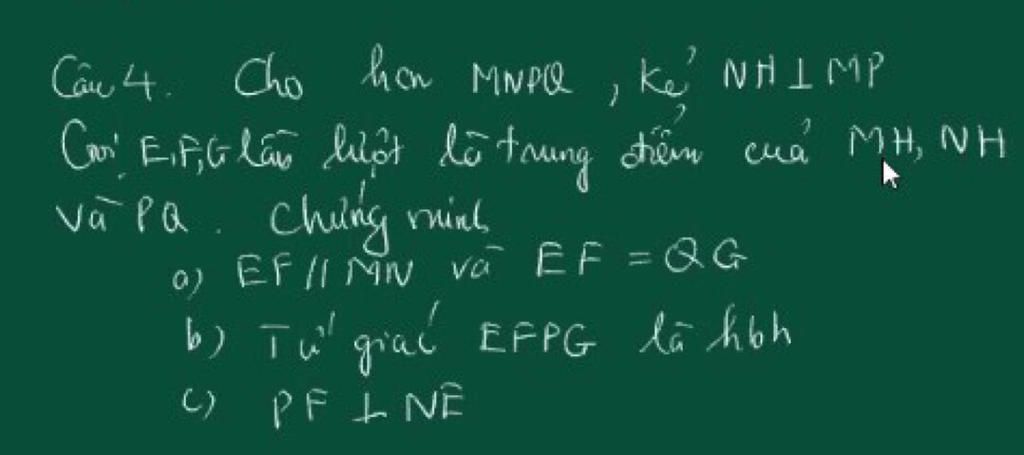 Câu 4. Cho hcn MNPQ, kẻ NH ⊥ MP
Gọi E,F,G lần lượt là trung điểm của MH, NH
và PQ. Chứng minh
a) EF // MN và EF = QG
b) Tứ giác EFPG là hbh
c) PF ⊥ NE